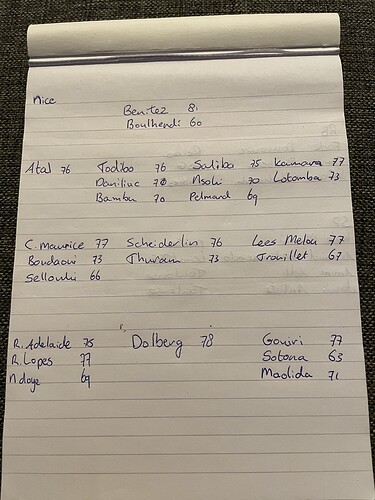 Nice
Benitez 81
Boulhendi 60
Atal 76 Todibo 76 Saliba 75 Kamara 77
Daniliuc 70 Nsoki 70 Lotomba 73
Bambu 70 Pelmard 69
C. Maurice 77 Schneiderlin 76 Lees Melou 77
Boudaoui 73 Thuram 73 Trouillet 67
Sellouki 66
R. Adelaide 75 Dolberg 78 Gouiri 77
R. Lopes 77 Sotona 63
Ndoye 69 Maolida 71